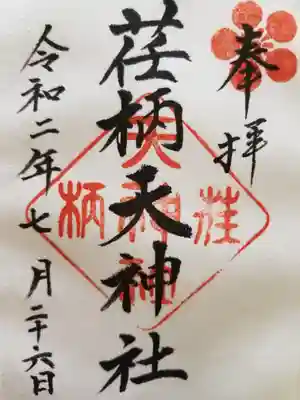 奉拝
荏柄天神社
令和二年七月二十六日
荏
天神社
柄